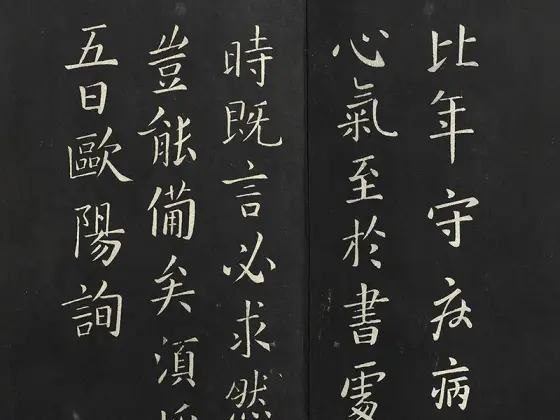 比年守病
心氣至於書
時既言必求然
豈能備矣須
五日歐陽詢